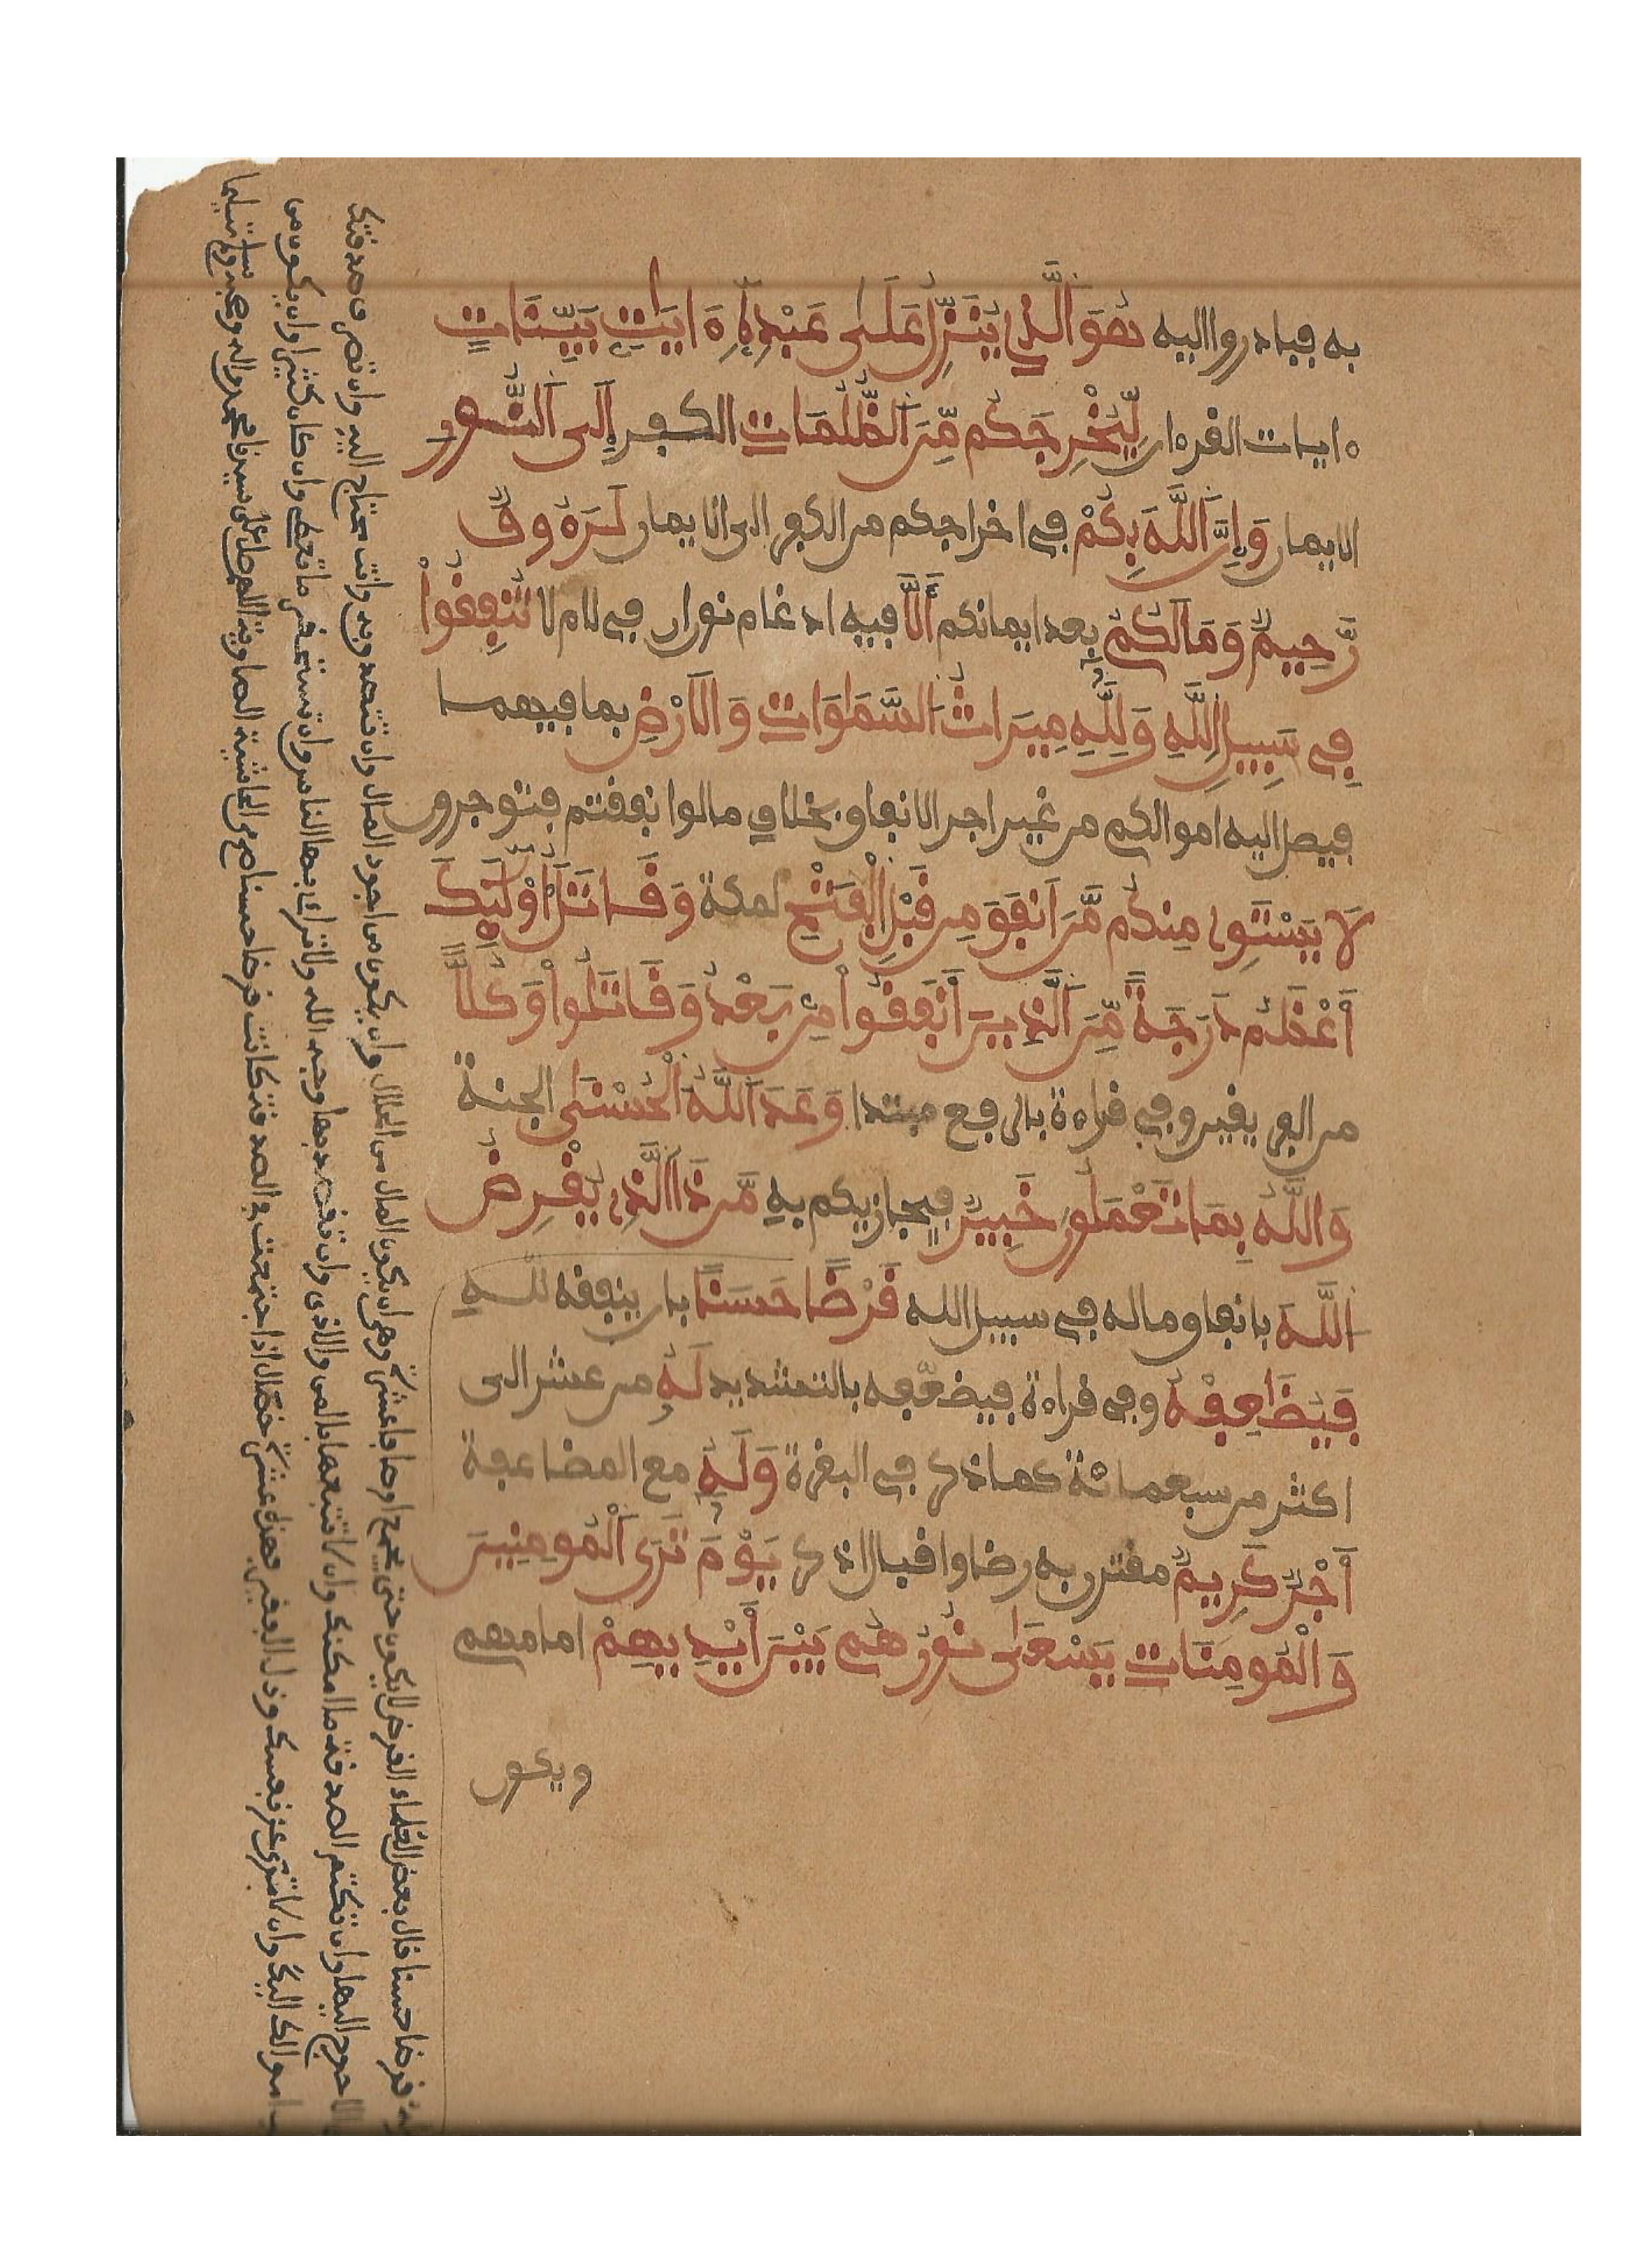 به فبادروا اليه هُوَ الَّذِي يُنَزِّلُ عَلَى عَبْدِهِ ءَايَاتٍ بَيِّنَاتٍ
ءايات القرءان لِّيُخْرِجَكُم مِّنَ الظُّلُمَاتِ الكفر إِلَى النُّورِ
الايمان وَإِنَّ اللَّهَ بِكُمْ في اخراجكم من الكفر الى الايمان لَرَءُوفٌ
رَّحِيمٌ وَمَا لَكُمْ بعد ايمانكم أَلَّا فيه ادغام نون ان في لام لا تُنفِقُوا
فِي سَبِيلِ اللَّهِ وَلِلَّهِ مِيرَاثُ السَّمَاوَاتِ وَالَارْضِ بما فيهما
فيصل اليه اموالكم من غير اجر الانفاق بخلاف ما لوا نفقتم فتوجرون
لَا يَسْتَوِي مِنكُم مَّنَ انفَقَ مِن قَبْلِ الْفَتْحِ لمكة وَقَاتَلَ أُوْلَٰئِكَ
أَعْظَمُ دَرَجَةً مِّنَ الَّذِينَ أَنفَقُوا مِن بَعْدُ وَقَاتَلُوا وَكُلًّا
من الفريقين وفي قراءة بالرفع مبتدا وَعَدَ اللَّهُ الْحُسْنَى الجنة
وَاللَّهُ بِمَا تَعْمَلُونَ خَبِيرٌ فيجازيكم به مَّن ذَا الَّذِي يُقْرِضُ
اللَّهَ بانفاق ماله في سبيل الله قَرْضًا حَسَنًا بان ينفقه لله
فَيُضَاعِفَهُ وفي قراءة فيضعّفه بالتشديد لَهُ من عشر الى
اكثر من سبعمائة كما ذكر في البقرة وَلَهُ مع المضاعفة
أَجْرٌ كَرِيمٌ مقترن به رضا واقبال اذكر يَوْمَ تَرَى الْمُومِنِينَ
وَالْمُومِنَاتِ يَسْعَى نُورُهُم بَيْنَ أَيْدِيهِمْ امامهم
ويكون
قرضا حسنا قال بعض العلماء القرض لا يكون حسنا حتى يجمع اوصافا عشرة وهي ان يكون المال من الحلال وان يكون من اجود المال وان تتصدق به وانت محتاج اليه وان تصرف صدقتك
الاحوج اليها وان تكتم الصدقة ما امكنك وان لا تتبعها بالمن والاذى وان تقصد بها وجه الله ولا تراءي بها الناس وان تستحقر ما تعطي وان كان كثيرا وان يكون من
اموالك اليك وان لا ترى عز نفسك وذل الفقير فهذه عشرة خصال اذا اجتمعت في الصدقة كانت قرضا حسنا صح من الحاشية الصاوية اللهم صل على سيدنا محمد واله وصحبه وسلم تسليما